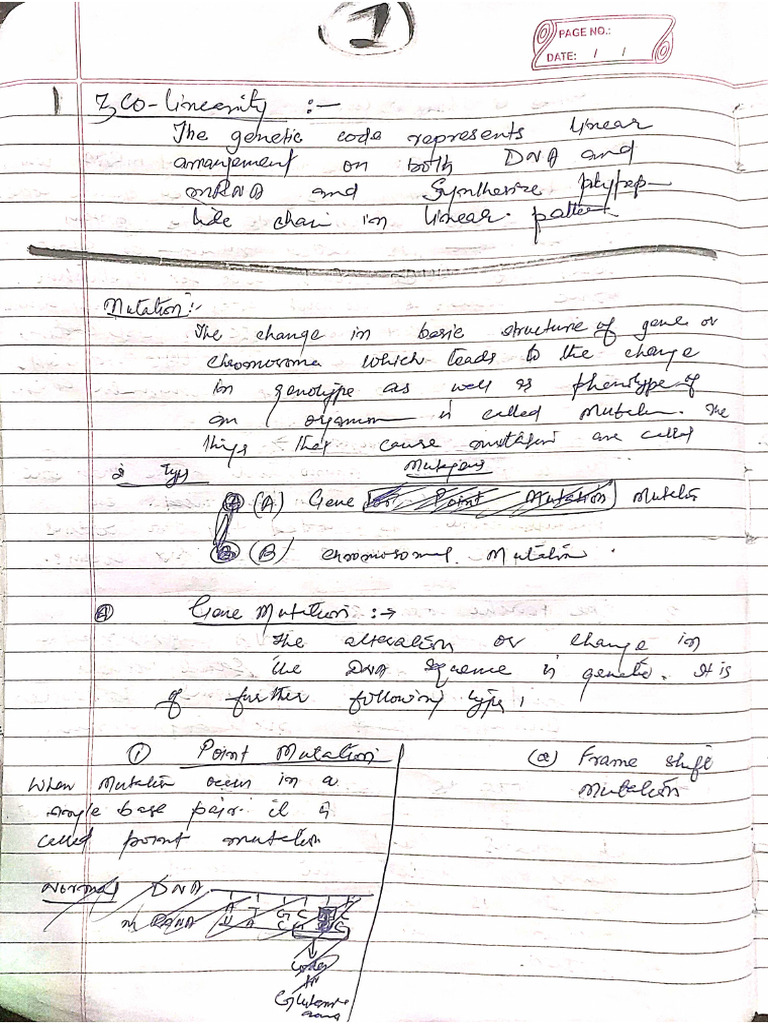 1
PAGE NO.:
DATE: / /
1 7, CO-linearity :-
The genetic code represents linear
arrangement on both DNA and
mRNA and Synthesize plypep-
tide chain in linear pattern
Mutation:-
The change in basic structure of gene or
chromosome which leads to the change
in genotype as well as phenotype of
an organism is called Mutation. The
things that cause mutation are called
Mutagens
2 Types
(A) Gene or Point Mutation Mutation
(B) Chromosomal Mutation
A Gene Mutation :→
The alteration or change in
the DNA sequence is genetic. It is
of further following type,
① Point Mutation
When Mutation occurs in a
single base pair it is
called point mutation
(a) Frame shift
Mutation
Normal DNA
A T G C C
mRNA U A C G G
Codes
for
Glutamic